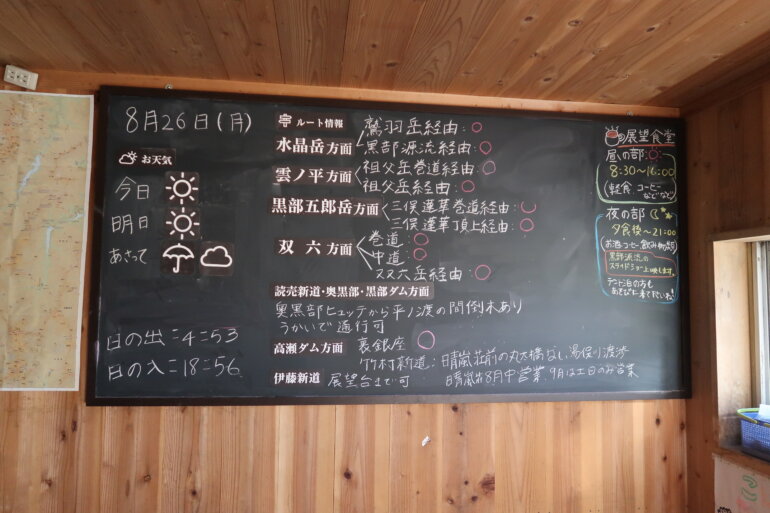 8月26日(月)
お天気
今日
明日
あさって
日の出=4=53
日の入=18=56
ルート情報
水晶岳方面
鷲羽岳経由:○
黒部源流経由:○
雲ノ平方面
祖父岳巻道経由:○
祖父岳経由:○
黒部五郎岳方面
三俣蓮華巻道経由:○
三俣蓮華頂上経由:○
双六方面
巻道:○
中道:○
双六岳経由:○
読売新道・奥黒部・黒部ダム方面
奥黒部ヒュッテから平ノ渡の間倒木あり
うかいで通行可
高瀬ダム方面
裏銀座○
竹村新道:晴嵐荘前の丸太橋なし、湯俣川渡渉
伊藤新道
展望台まで可
晴嵐荘8月中営業、9月は土日のみ営業
展望食堂
昼の部:○
8:30〜16:00
(軽食、コーヒーなどなど)
夜の部
夕食後〜21:00
(お酒コーヒー飲み物
黒部源流の
スライドショー上映します。
テント泊の方も
あそびに来て下さいね!